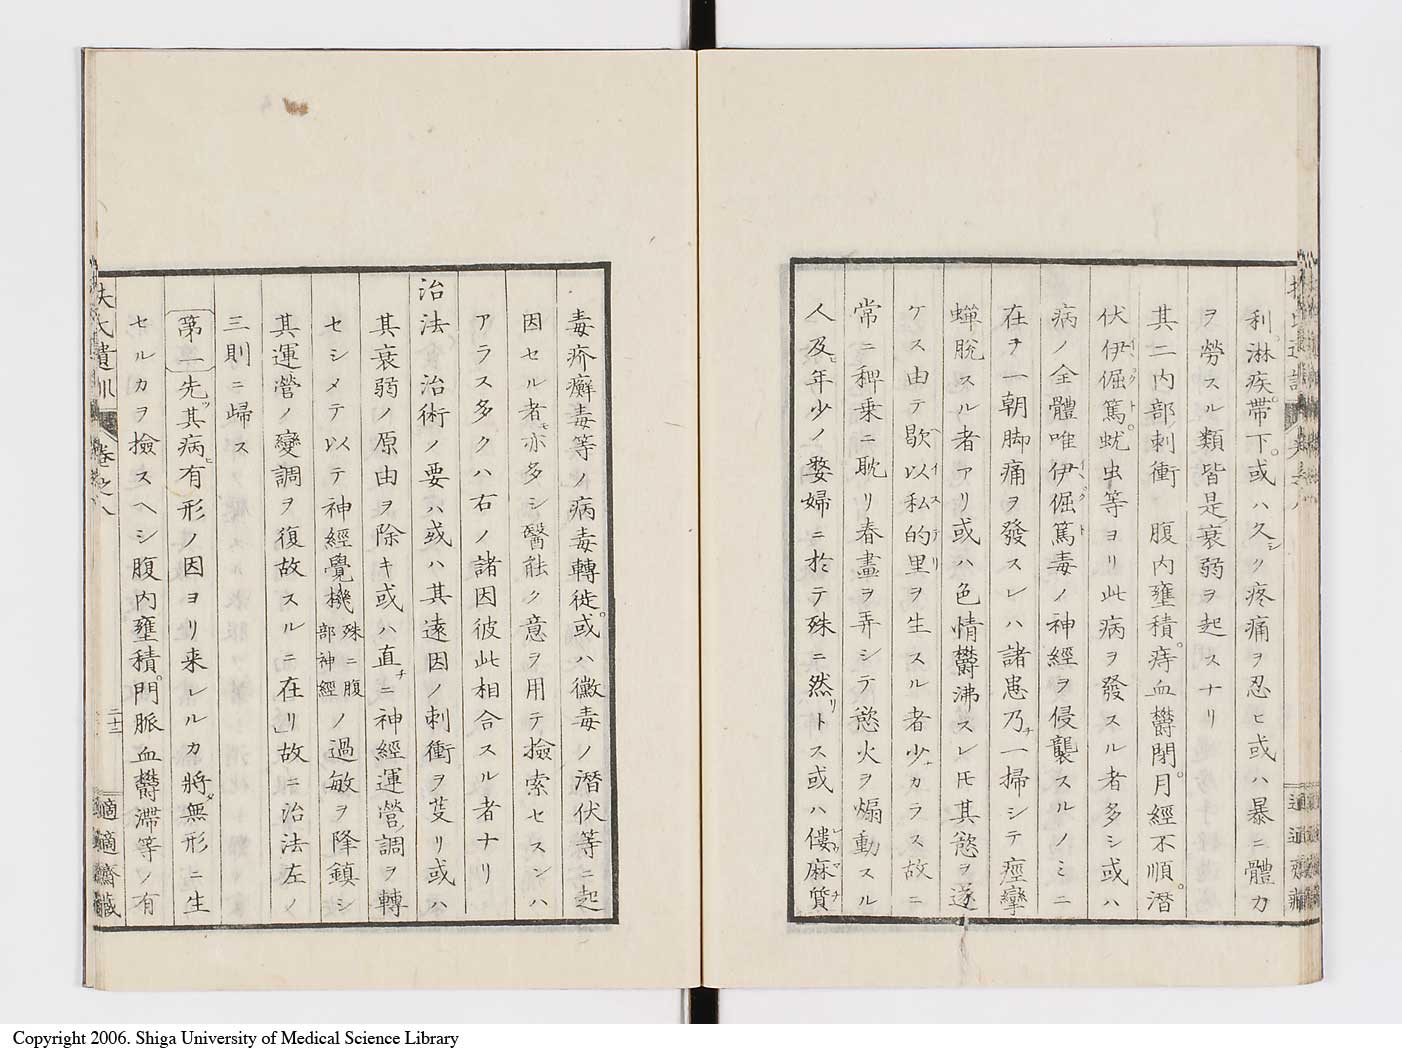 利淋疾。帶下。或ハ久シク疼痛ヲ忍ヒ或ハ暴ニ體力
ヲ勞スル類皆是衰弱ヲ起スナリ
其二内部刺衝　腹内壅積。痔血鬱閉。月經不順。潛
伏伊倔篤。蚘虫等ヨリ此病ヲ發スル者多シ或ハ
病ノ全體唯伊倔篤毒ノ神經ヲ侵襲スルノミニ
在ヲ一朝脚痛ヲ發スレハ諸患乃チ一掃シテ瘂攣
蟬脫スル者アリ或ハ色情鬱沸スレ𪜈其慾ヲ遂
ケス由テ歇以私的里ヲ生スル者少ナカラス故ニ
常ニ稗乗ニ耽リ春畫ヲ弄シテ慾火ヲ煽動スル
人及ヒ年少ノ嫠婦ニ於テ殊ニ然リトス或ハ僂麻質
毒疥癬毒等ノ病毒轉徙。或ハ黴毒ノ潛伏等ニ起
因セル者モ亦多シ醫能ク意ヲ用テ撿索セスンハ
アラス多クハ右ノ諸因彼此相合スル者ナリ
治法　治術ノ要ハ或ハ其遠因ノ刺衝ヲ芟リ或ハ
其衰弱ノ原由ヲ除キ或ハ直チニ神經運營調ヲ轉
セシメテ以テ神經覺機殊ニ腹部神經ノ過敏ヲ降鎮シ
其運營ノ變調ヲ復故スルニ在リ」故ニ治法左ノ
三則ニ歸ス
第一先ツ其病有形ノ因ヨリ来レルカ將タ無形ニ生
セルカヲ撿スヘシ腹内壅積。門脈血鬱滯等ノ有
扶氏遺訓　卷之八
二十三
適適齋藏